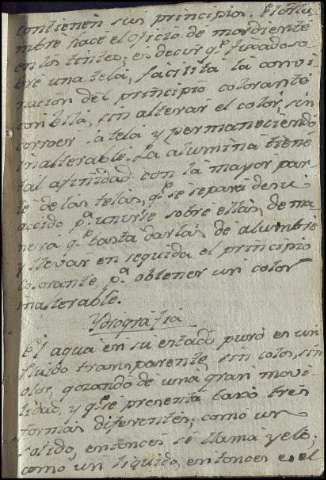 contienen sus principio. El alu
mbre hace el oficio de mordiente
en los tintes; es decir q.e fixado so
bre una tela, facilita la convi
nacion del principio colorante
con ella, sin alterar el color, sin
corroer la tela y permaneciendo
inalterable. La alumina tiene
tal afinidad con la mayor par
te de las telas, q.e se separa de su
acido p.a unirse sobre ellas, de ma
nera q.e basta darlas de alumbre
y llevar en seguida el principio
colorante p.a obtener un color
inalterable.
Ydrografia
El agua en su estado puro es un
fluido transparente, sin color, sin
olor, gozando de una gran movi
lidad, y q.e se presenta baxo tres
formas diferentes; como un
solido, entonces se llama yelo;
como un liquido, entonces es el